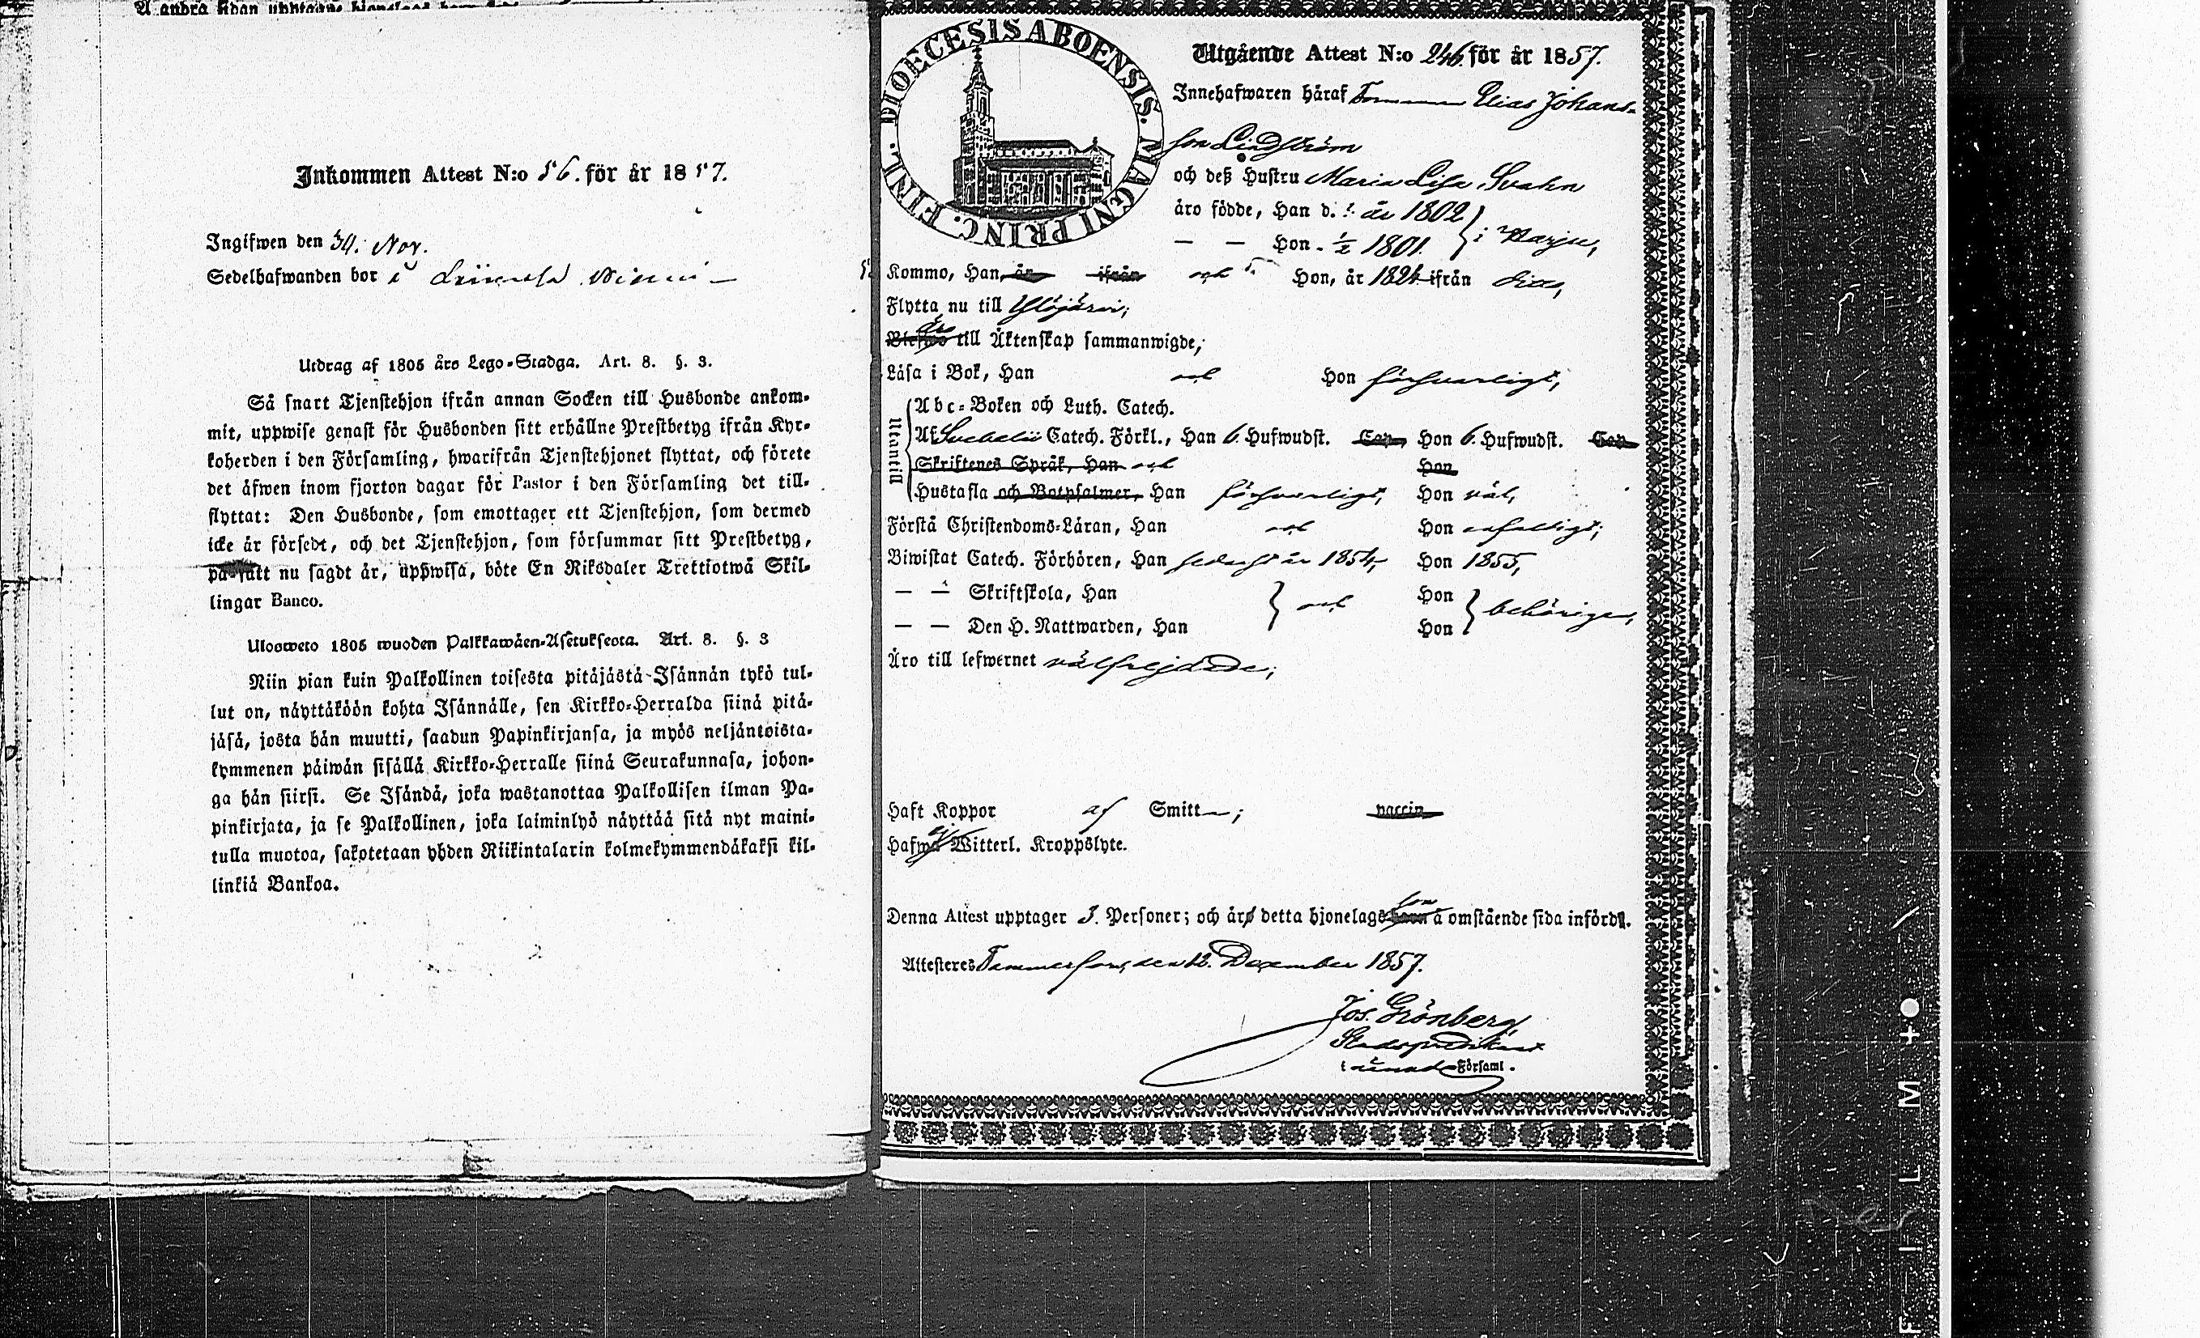 Å andra sidan upptagne hjonelaget
Inkommen Attest N:o 56. för år 1857.
Ingifwen den 30. Nov.
Sedelhafwanden bor i
Utdrag af 1805 års Lego-Stadga. Art. 8. §. 3.
Så snart Tjenstehjon ifrån annan Socken till Husbonde ankom-
mit, uppwise genast för Husbonden sitt erhållne Prestbetyg ifrån Kyr-
koherden i den Församling, hwarifrån Tjenstehjonet flyttat, och förete
det äfwen inom fjorton dagar för Pastor i den Församling det till-
flyttat: Den Husbonde, som emottager ett Tjenstehjon, som dermed
icke är försedt, och det Tjenstehjon, som försummar sitt Prestbetyg,
på sätt nu sagdt är, uppwisa, böte En Riksdaler Trettiotwå Skil-
lingar Banco.
Ulosweto 1805 wuoden Palkkawäen-Asetuksesta. Art. 8. §. 3
Niin pian kuin Palkollinen toisesta pitäjästä Isännän tykö tul-
lut on, näyttäköön kohta Isännälle, sen Kirkko-Herralda siinä pitä-
jäsä, josta hän muutti, saadun Papinkirjansa, ja myös neljäntoista-
kymmenen päiwän sisällä Kirkko-Herralle siinä Seurakunnasa, johon-
ga hän siirsi. Se Isändä, joka wastanottaa Palkollisen ilman Pa-
pinkirjata, ja se Palkollinen, joka laiminlyö näyttää sitä nyt maini-
tulla muotoa, sakotetaan yhden Riikintalarin kolmekymmendäkaksi kil-
linkiä Bankoa.
DIOECESIS ABOENSIS. MAGNI PRINC. FINL.
Utgående Attest N:o 246. för år 1857.
Innehafwaren häraf Elias Johans-
son Lindström
och deß Hustru Maria Lisa Svahn
äro födde, Han d. år 1802
— — Hon - ½ 1801. } i
Kommo, Han, år ifrån och Hon, år 1824 ifrån
Flytta nu till Ylöjärvi;
Blefwo äro till Äktenskap sammanwigde;
Läsa i Bok, Han och Hon försvarligt,
Utantill
Abc-Boken och Luth. Catech.
Af Svebelii Catech. Förkl., Han 6. Hufwudst. Cap. Hon 6. Hufwudst. Cap.
Skriftenes Språk, Han och Hon
Hustafla och Botpsalmer, Han försvarligt, Hon väl,
Förstå Christendoms-Läran, Han och Hon enfaldigt;
Biwistat Catech. Förhören, Han sednast år 1854, Hon 1855,
— — Skriftskola, Han och Hon behörigen,
— — Den H. Nattwarden, Han Hon
Äro till lefwernet välfrejdade;
Haft Koppor af Smitt ; vaccin
Hafwa ej Witterl. Kroppslyte.
Denna Attest upptager 3. Personer; och äro detta hjonelags barn son å omstående sida införde.
Attesteres Tammerfors, den 12. December 1857.
Jos. Grönberg,
Stadspredikant
i Församl.
FILM